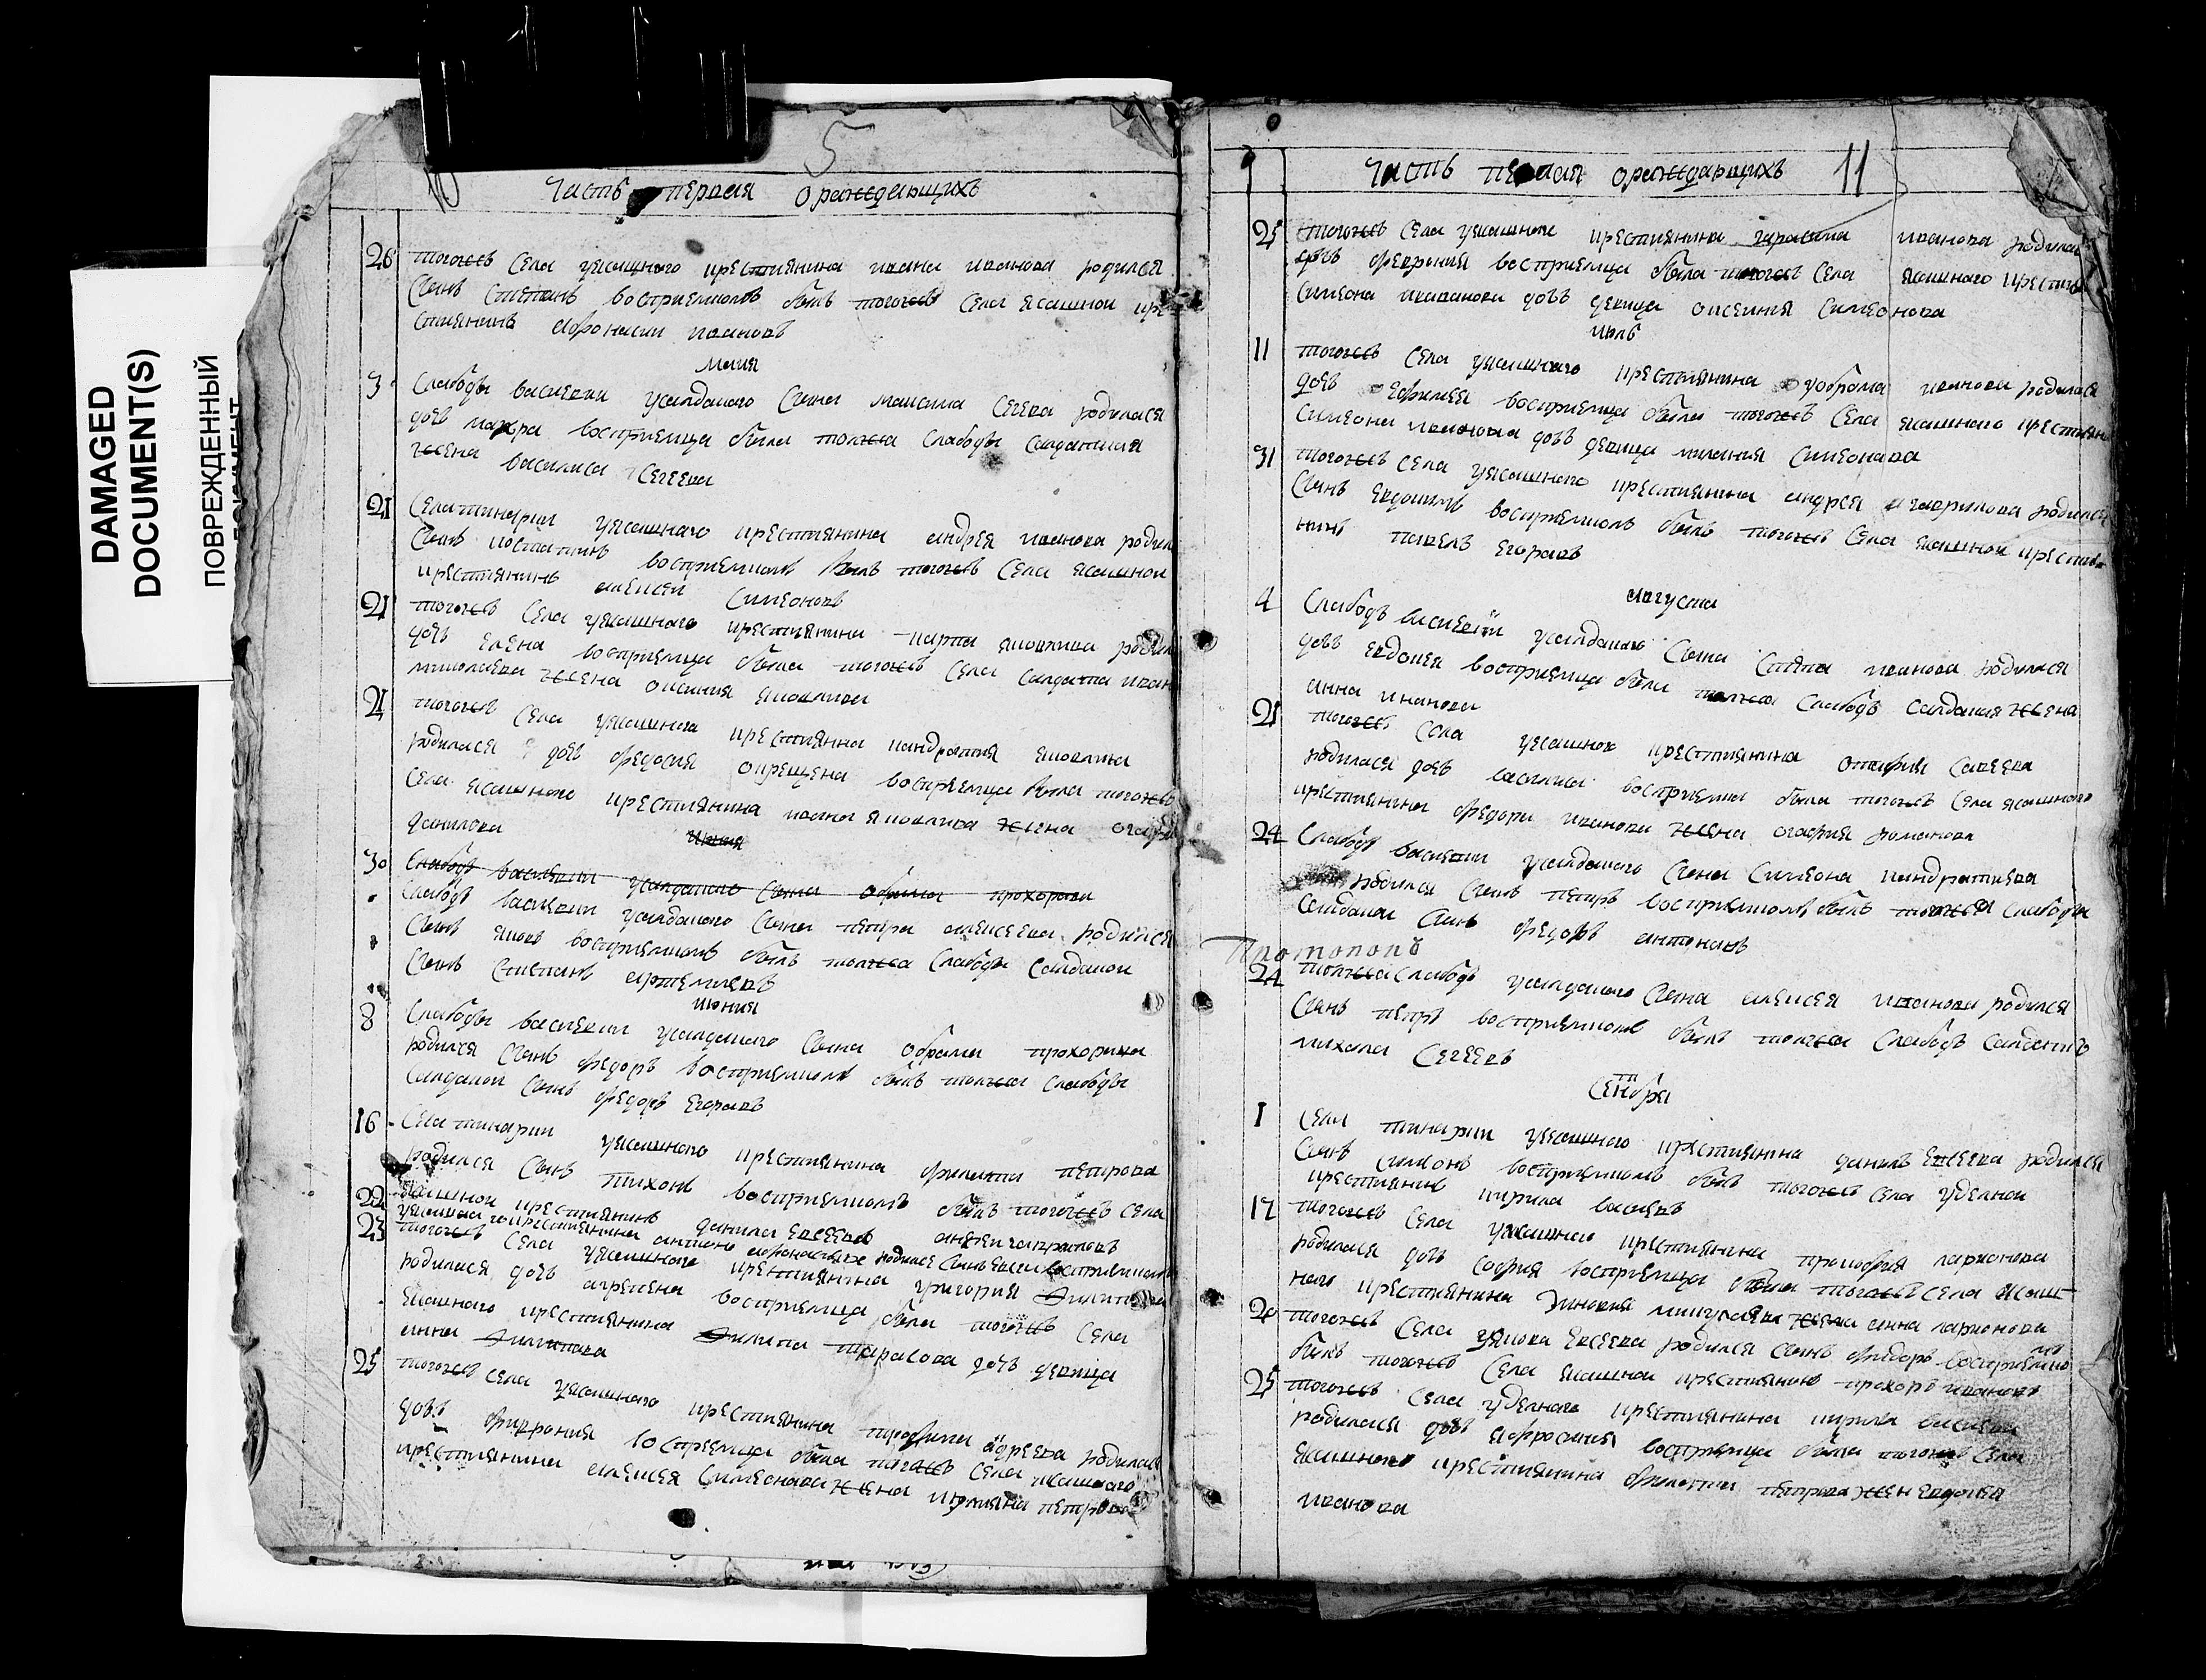 DAMAGED
DOCUMENT(S)
ПОВРЕЖДЕННЫЙ
5
часть первая оражедающихъ
26 тогожъ села уясашнаго крестиянина ивана иванова родился
сынъ степанъ восприемникъ былъ тогожъ села ясашной кре
стиянинъ афонасии ивановъ
маия
3 слабоды васиевки усалдацкаго сына максима сегева родилася
дочь мавра восприемница была тояжа слабоды салдацкая
жена василиса сегеева
21 села тинарки уясашнаго крестиянина андрея иванова родил
сынъ костантинъ восприемникъ былъ тогожъ села ясашной
крестиянинъ алексей симеоновъ
21 тогожъ села уясашнаго крестиянина карпа яковлива родил
дочь елена восприемница была тогожъ села салдата иван
миколаева жена оксиния яковлива
21 тогожъ села уясашнаго крестиянина кандратия яковлива
родилася дочь федосия окрещена восприемница была тогожъ
села ясашнаго крестиянина ивана яковлива жена огафи
данилова
июня
30 слабодъ васиевки усалдацкаго сына обрама прохорова
слабодъ васиевки усалдацкаго сына петра алексеева родился
сынъ яковъ восприемникъ былъ тояжа слабоды салдацкои
сынъ степанъ артемиевъ
июния
8 слабоды васиевки усалдацкаго сына обрама прохорива
родился сынъ федоръ восприемникъ былъ тояжа слабоды
салдацкои сынъ федоръ егоравъ
16 села тинарки уясашнаго крестиянина филипа петрова
родился сынъ тихонъ восприемникъ былъ тогожъ села
ясашной крестиянинъ данила евсеевъ
22 уясашнаго крестиянина антипа афонасива родился сынъ восприемникъ
андреи гавриловъ
23 тогожъ села уясашнаго крестиянина григория филипова
родилася дочь агрепена восприемница была тогожъ села
ясашнаго крестиянина филипа тарасова дочь девица
анна филипава
25 тогожъ села уясашнаго крестиянина трофима адреева родилася
дочь феврония востреемница была тогожъ села ясашнаго
крестиянина алексея симеонава жена устинья петрова
часть первая оражедающихъ 11
25 тогожъ села уясашнаго крестиянина гарасима иванова родилася
дочь феврония восприемница была тогожъ села ясашнаго крестия
симеона иванова дочь девица оксиния симеонова
июль
11 тогожъ села уясашнаго крестиянина уобрама иванова родилася
дочь ефимея восприемница была тогожъ села ясашнаго крестиян
симеона иванова дочь девица милания симеонава
31 тогожъ села уясашнаго крестиянина андрея гаврилова родился
сынъ евдокимъ восприемникъ былъ тогожъ села ясашной крестия
нинъ павелъ егоравъ
августа
4 слабодъ васиевки усалдацкаго сына степа иванова родилася
дочь евдокея восприемница была тояжа слабодъ салдацкая жена
анна иванова
21 тогожъ села уясашнаго крестиянина онафрия савеева
родилася дочь василиса восприемница была тогожъ села ясашнаго
крестиянина федора иванова жена огафия романова
24 слабодъ васиевки усалдацкаго сына симеона кандратиева
родился сынъ петръ восприемникъ былъ тояжа слабоды
салдацкои сынъ федоръ антоновъ
Протопопъ
24 тояжа слабодъ усалдацкаго сына алексея иванова родился
сынъ петръ восприемникъ былъ тояжа слабодъ салдатъ
михаила сегеевъ
сентября
1 села тинарки уясашнаго крестиянина данилъ евсеева родился
сынъ симеонъ восприемникъ былъ тогожъ села уделной
крестиянинъ кирила васиевъ
17 тогожъ села уясашнаго крестиянина прокофия ларионова
родилася дочь софия восприемница была тогожъ села ясаш
наго крестиянина зиновия микулаева жена анна ларионова
20 тогожъ села уякова евсеева родился сынъ фидоръ восприемникъ
былъ тогожъ села ясашной крестиянинъ прохоръ ивановъ
25 тогожъ села уделнаго крестиянина кирила васиева
родилася дочь ефросиния восприемница была тогожъ села
ясашнаго крестиянина филипа петрова жена евдокея
иванова